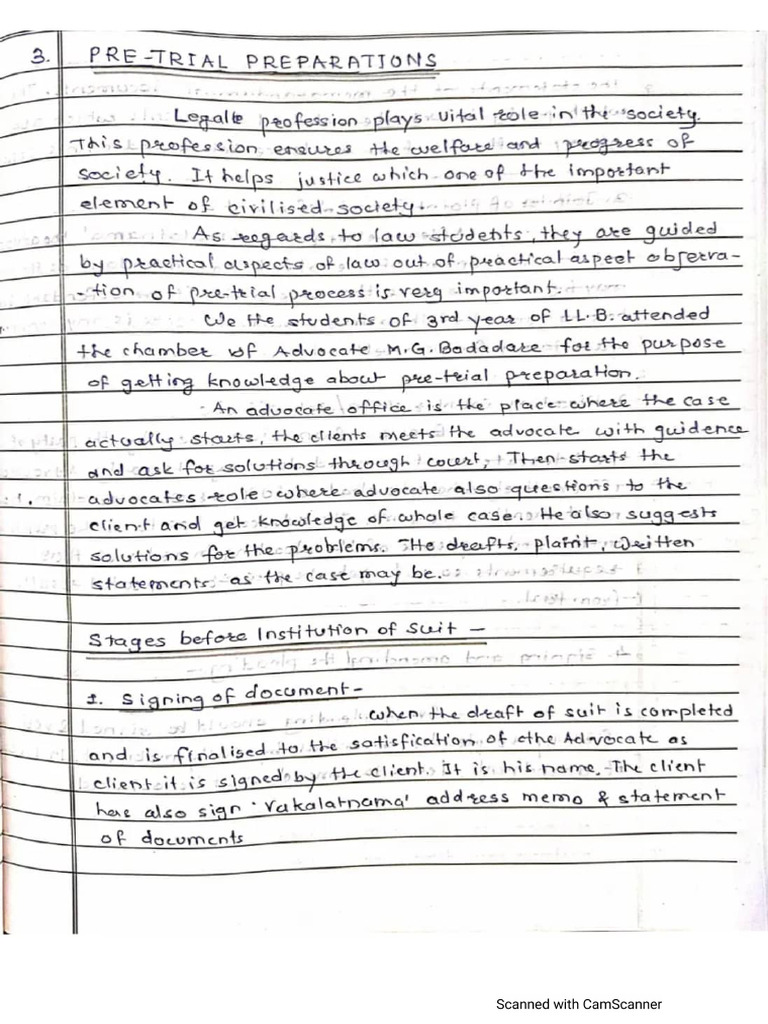 3. PRE-TRIAL PREPARATIONS
Legale profession plays vital role in the society.
This profession ensures the welfare and progress of
society. It helps justice which one of the important
element of civilised society.
As regards to law students, they are guided
by practical aspects of law out of practical aspect observa-
-tion of pre-trial process is very important.
We the students of 3rd year of LL.B. attended
the chamber of Advocate M.G. Badadare for the purpose
of getting knowledge about pre-trial preparation.
An advocate office is the place where the case
actually starts, the clients meets the advocate with guidence
and ask for solutions through court, Then starts the
advocates role where advocate also questions to the
client and get knowledge of whole case. He also suggests
solutions for the problems. The drafts, plaint, written
statements as the case may be.
Stages before Institution of suit -
1. Signing of document-
when the draft of suit is completed
and is finalised to the satisfication of the Advocate as
client it is signed by the client. It is his name. The client
has also sign 'vakalatnama' address memo & statement
of documents
Scanned with CamScanner